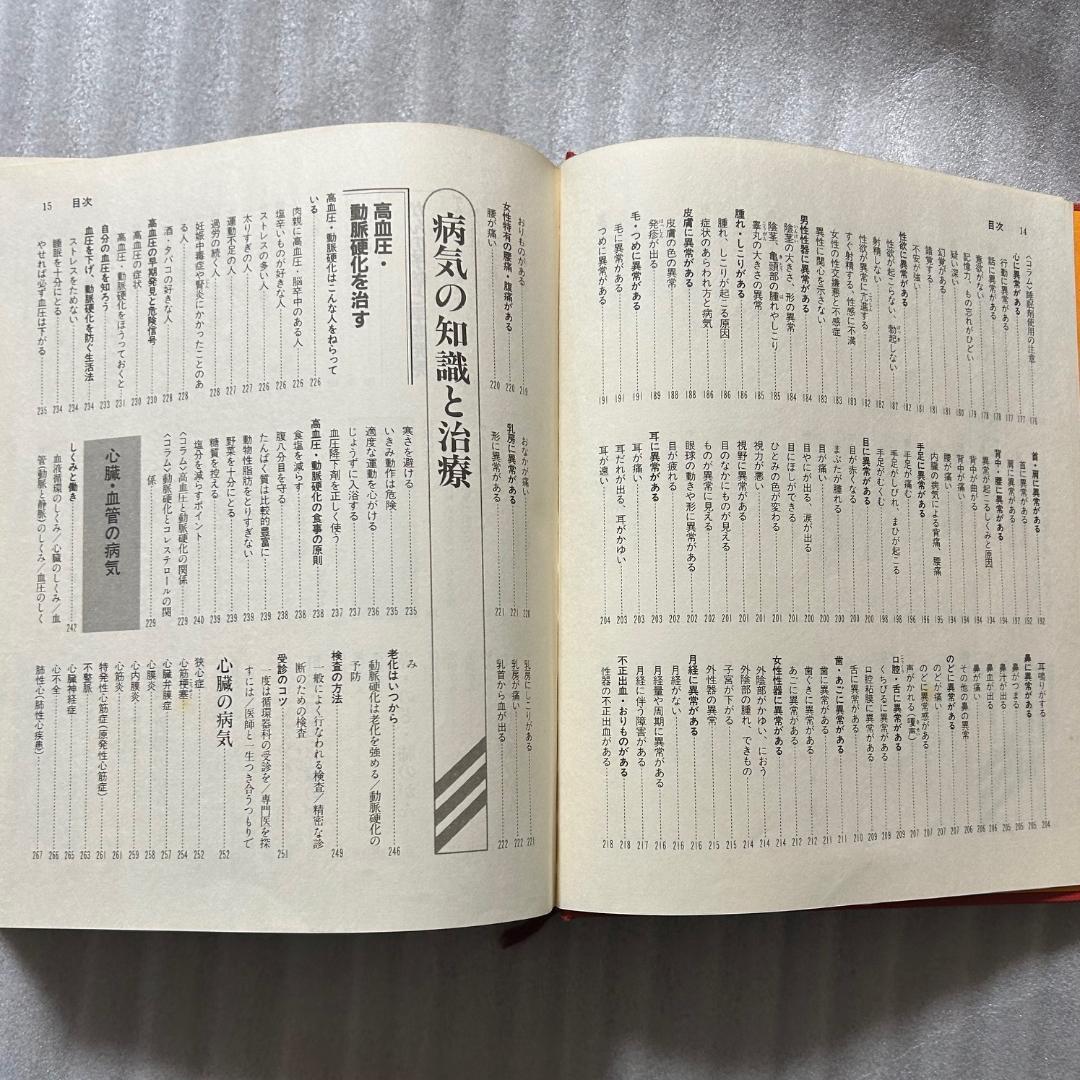 目次 14
〈コラム〉睡眠剤使用の注意 176
心に異常がある 177
行動に異常がある 177
話に異常がある 178
意欲がない 178
記憶力、もの忘れがひどい 179
疑い深い 180
幻覚がある 181
錯覚する 181
不安が強い 181
性欲に異常がある 182
性欲が起こらない、勃起しない 182
射精しない 182
性欲が異常に亢進する 183
すぐ射精する、性感に不満 183
女性の性交嫌悪と不感症
異性に関心を示さない
男性性器に異常がある 184
陰茎の大きさ、形の異常 184
陰茎、亀頭部の腫れやしこり
睾丸の大きさの異常
腫れ・しこりがある 186
腫れ、しこりが起こる原因 186
症状のあらわれ方と病気 186
皮膚に異常がある 188
皮膚の色の異常 188
発疹が出る
毛・つめに異常がある 191
毛に異常がある 191
つめに異常がある 191
首、肩に異常がある 192
首に異常がある 192
肩に異常がある 192
背中・腰に異常がある
異常が起こるしくみと原因
背中が曲がる 194
背中が痛い
腰が痛い 195
内臓の病気による背痛、腰痛 196
手足に異常がある
手足が痛む
手足がしびれ、まひが起こる
手足がむくむ
目に異常がある 200
目が赤くなる 200
まぶたが腫れる 200
目が痛い 201
目やにが出る、涙が出る 201
目にほしができる 201
ひとみの色が変わる 201
視力が悪い 201
視野に異常がある 201
目のなかにものが見える 202
ものが異常に見える 202
眼球の動きや形に異常がある 202
目が疲れる 202
耳に異常がある 203
耳が痛い 203
耳だれが出る、耳がかゆい 203
耳が遠い 204
耳鳴りがする 204
鼻に異常がある 205
鼻がつまる 205
鼻汁が出る 205
鼻血が出る
鼻が痛い 206
その他の鼻の異常 206
のどに異常がある 206
のどが痛い 207
のどに異常感がある 207
声がかれる(嗄声) 207
口腔・舌に異常がある 209
くちびるに異常がある 209
口腔粘膜に異常がある 209
舌に異常がある 210
歯・あごに異常がある 211
歯に異常がある 211
歯ぐきに異常がある 212
あごに異常がある 212
女性性器に異常がある 214
外陰部がかゆい、におう 214
外陰部の腫れ、できもの 214
子宮が下がる 215
外性器の異常 215
月経に異常がある 216
月経がない 216
月経量や周期に異常がある 216
月経に伴う障害がある 217
不正出血・おりものがある 218
性器の不正出血がある 218
15 目次
おりものがある 219
女性特有の腰痛・腹痛がある 220
腰が痛い 220
おなかが痛い 220
乳房に異常がある 221
形に異常がある 221
乳房にしこりがある 221
乳房が痛い 222
乳首から血が出る 222
病気の知識と治療
高血圧・
動脈硬化を治す
高血圧・動脈硬化はこんな人をねらって
いる 226
肉親に高血圧・脳卒中のある人 226
塩辛いものが好きな人 226
ストレスの多い人 226
太りすぎの人 227
運動不足の人 227
過労の続く人 228
妊娠中毒症や腎炎にかかったことのあ
る人 228
酒・タバコの好きな人 228
高血圧の早期発見と危険信号 230
高血圧の症状 230
高血圧・動脈硬化をほうっておくと 231
自分の血圧を知ろう 233
血圧を下げ、動脈硬化を防ぐ生活法 234
ストレスをためない 234
睡眠を十分にとる 234
やせれば必ず血圧は下がる 235
寒さを避ける 235
いきみ動作は危険 235
適度な運動を心がける 236
じょうずに入浴する 237
血圧降下剤を正しく使う 237
高血圧・動脈硬化の食事の原則 238
食塩を減らす 238
腹八分目を守る 238
たんぱく質は比較的豊富に 239
動物性脂肪をとりすぎない 239
野菜を十分にとる 239
糖質を控える 239
塩分を減らすポイント 240
〈コラム〉高血圧と動脈硬化の関係 229
〈コラム〉動脈硬化とコレステロールの関
係 229
心臓・血管の病気
しくみと働き 242
血液循環のしくみ／心臓のしくみ／血
管(動脈と静脈)のしくみ／血圧のしく
み
老化はいつから 246
動脈硬化は老化を強める／動脈硬化の
予防
検査の方法 249
一般によく行なわれる検査／精密な診
断のための検査
受診のコツ 251
一度は循環器科の受診を／専門医を探
すには／医師と一生つき合うつもりで
心臓の病気 252
狭心症 252
心筋梗塞 254
心臓弁膜症 257
心膜炎 258
心内膜炎 259
心筋炎 261
特発性心筋症(原発性心筋症) 261
不整脈 263
心臓神経症 265
心不全 266
肺性心(肺性心疾患) 267